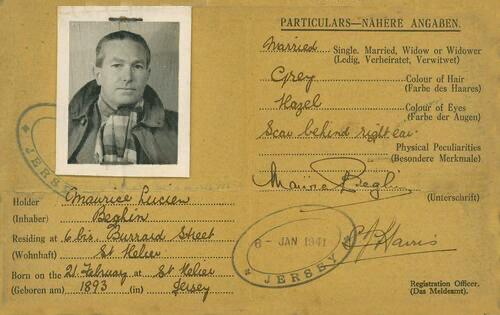 JERSEY
Holder Maurice Lucien
(Inhaber) Beghin
Residing at 6 bis. Burrard Street
(Wohnhaft) St Helier
Born on the 21 February at St Helier
(Geboren am) 1893 (in) Jersey
PARTICULARS—NÄHERE ANGABEN.
Married Single, Married, Widow or Widower
(Ledig, Verheiratet, Verwitwet)
Grey Colour of Hair
(Farbe des Haares)
Hazel Colour of Eyes
(Farbe der Augen)
Scar behind right ear.
Physical Peculiarities
(Besondere Merkmale)
(Unterschrift)
8 - JAN 1941
JERSEY
Registration Officer,
(Das Meldeamt).